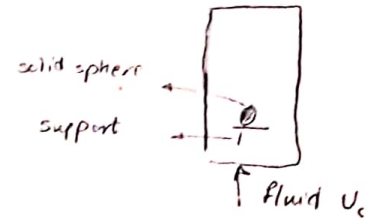 solid sphere
support
fluid U_c